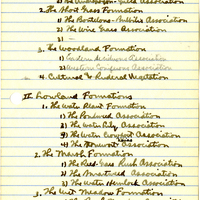 2. The Short Grass Formation
1) The Bouteloua - Bulbilis Association
2) The Wire Grass Association
3) —
3. The Woodland Formation
1) Eastern Deciduous Association
2) Western Coniferous Association
4. Cultural & Ruderal Vegetation
II Lowland Formations
1. The Water Plant Formation
1) The Pondweed Association
2) The Water Lily Association
3) The Water Crowfoot Association
4) The Hornwort Association
2. The Marsh Formation
1) The Reed-Grass Rush Association
2) The Association
3) The Water Hemlock Association
3. The Wet Meadow Formation